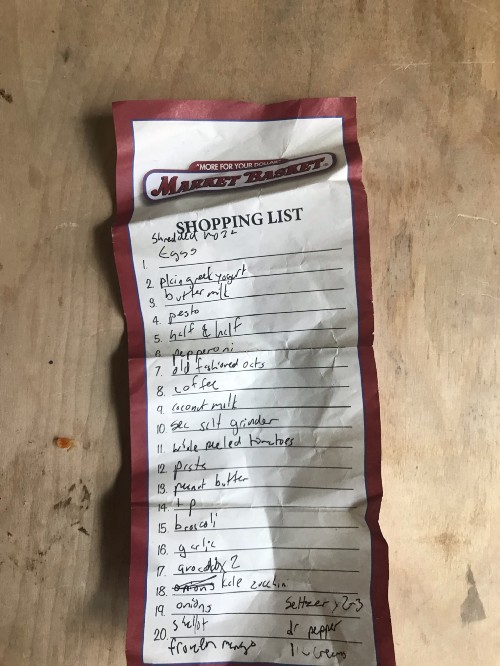 "MORE FOR YOUR DOLLAR"
MARKET BASKET
SHOPPING LIST
Shredded mozz
1. Eggs
2. plain greek yogurt
3. buttermilk
4. pesto
5. half & half
6. pepperoni
7. old fashioned oats
8. coffee
9. coconut milk
10. sea salt grinder
11. whole peeled tomatoes
12. pasta
13. peanut butter
14. tp
15. broccoli
16. garlic
17. avocado x 2
18. onions kale zucchini
19. onions seltzer x 2-3
20. shallot dr pepper
frozen mango ice cream